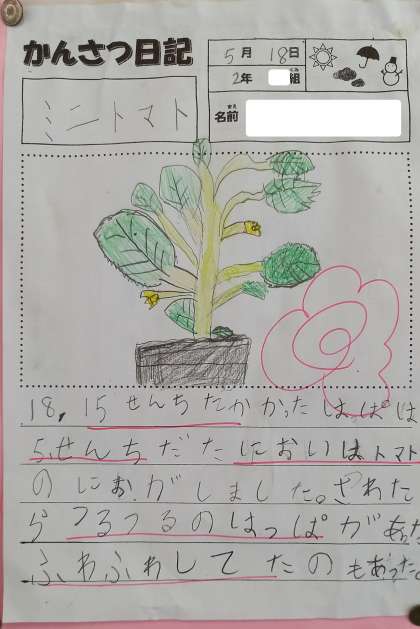 かんさつ日記
5月 18日
2年 組
ミニトマト
名前
18,15せんちたかかったはっぱは
5せんちだたにおいはトマト
のにおがしました。さわた
らつるつるのはっぱがあった
ふわふわしてたのもあった。